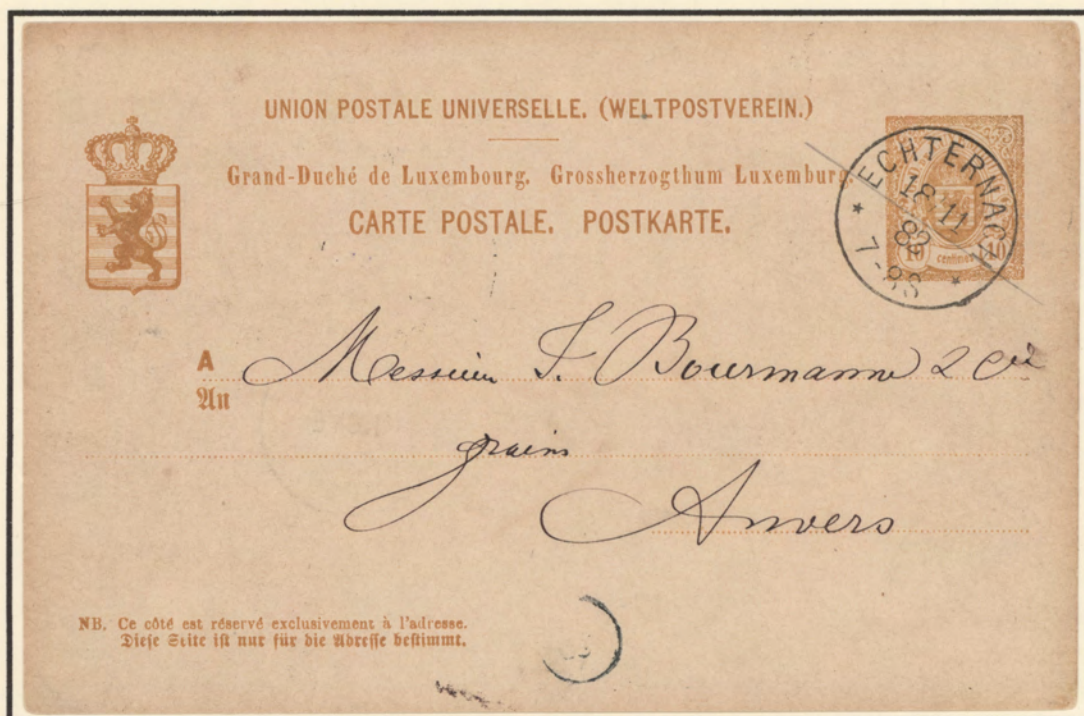 UNION POSTALE UNIVERSELLE. (WELTPOSTVEREIN.)
Grand-Duché de Luxembourg. Grossherzogthum Luxemburg.
CARTE POSTALE. POSTKARTE.
ECHTERNACH
18 11
82
7-8S
10 centimes 10
A Messieurs F. Bourmanne & Cie
An
grains
Anvers
NB. Ce côté est réservé exclusivement à l'adresse.
Diese Seite ist nur für die Adresse bestimmt.